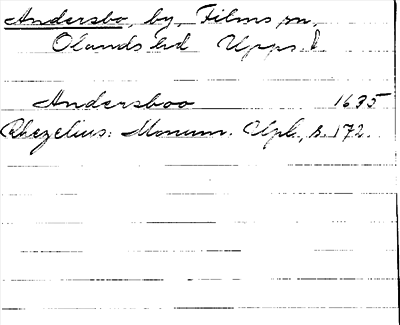 Andersbo, by, Films sn,
Olands hd Upps. l
Andersboo 1635
Rhezelius: Monum. Upl., s. 172.